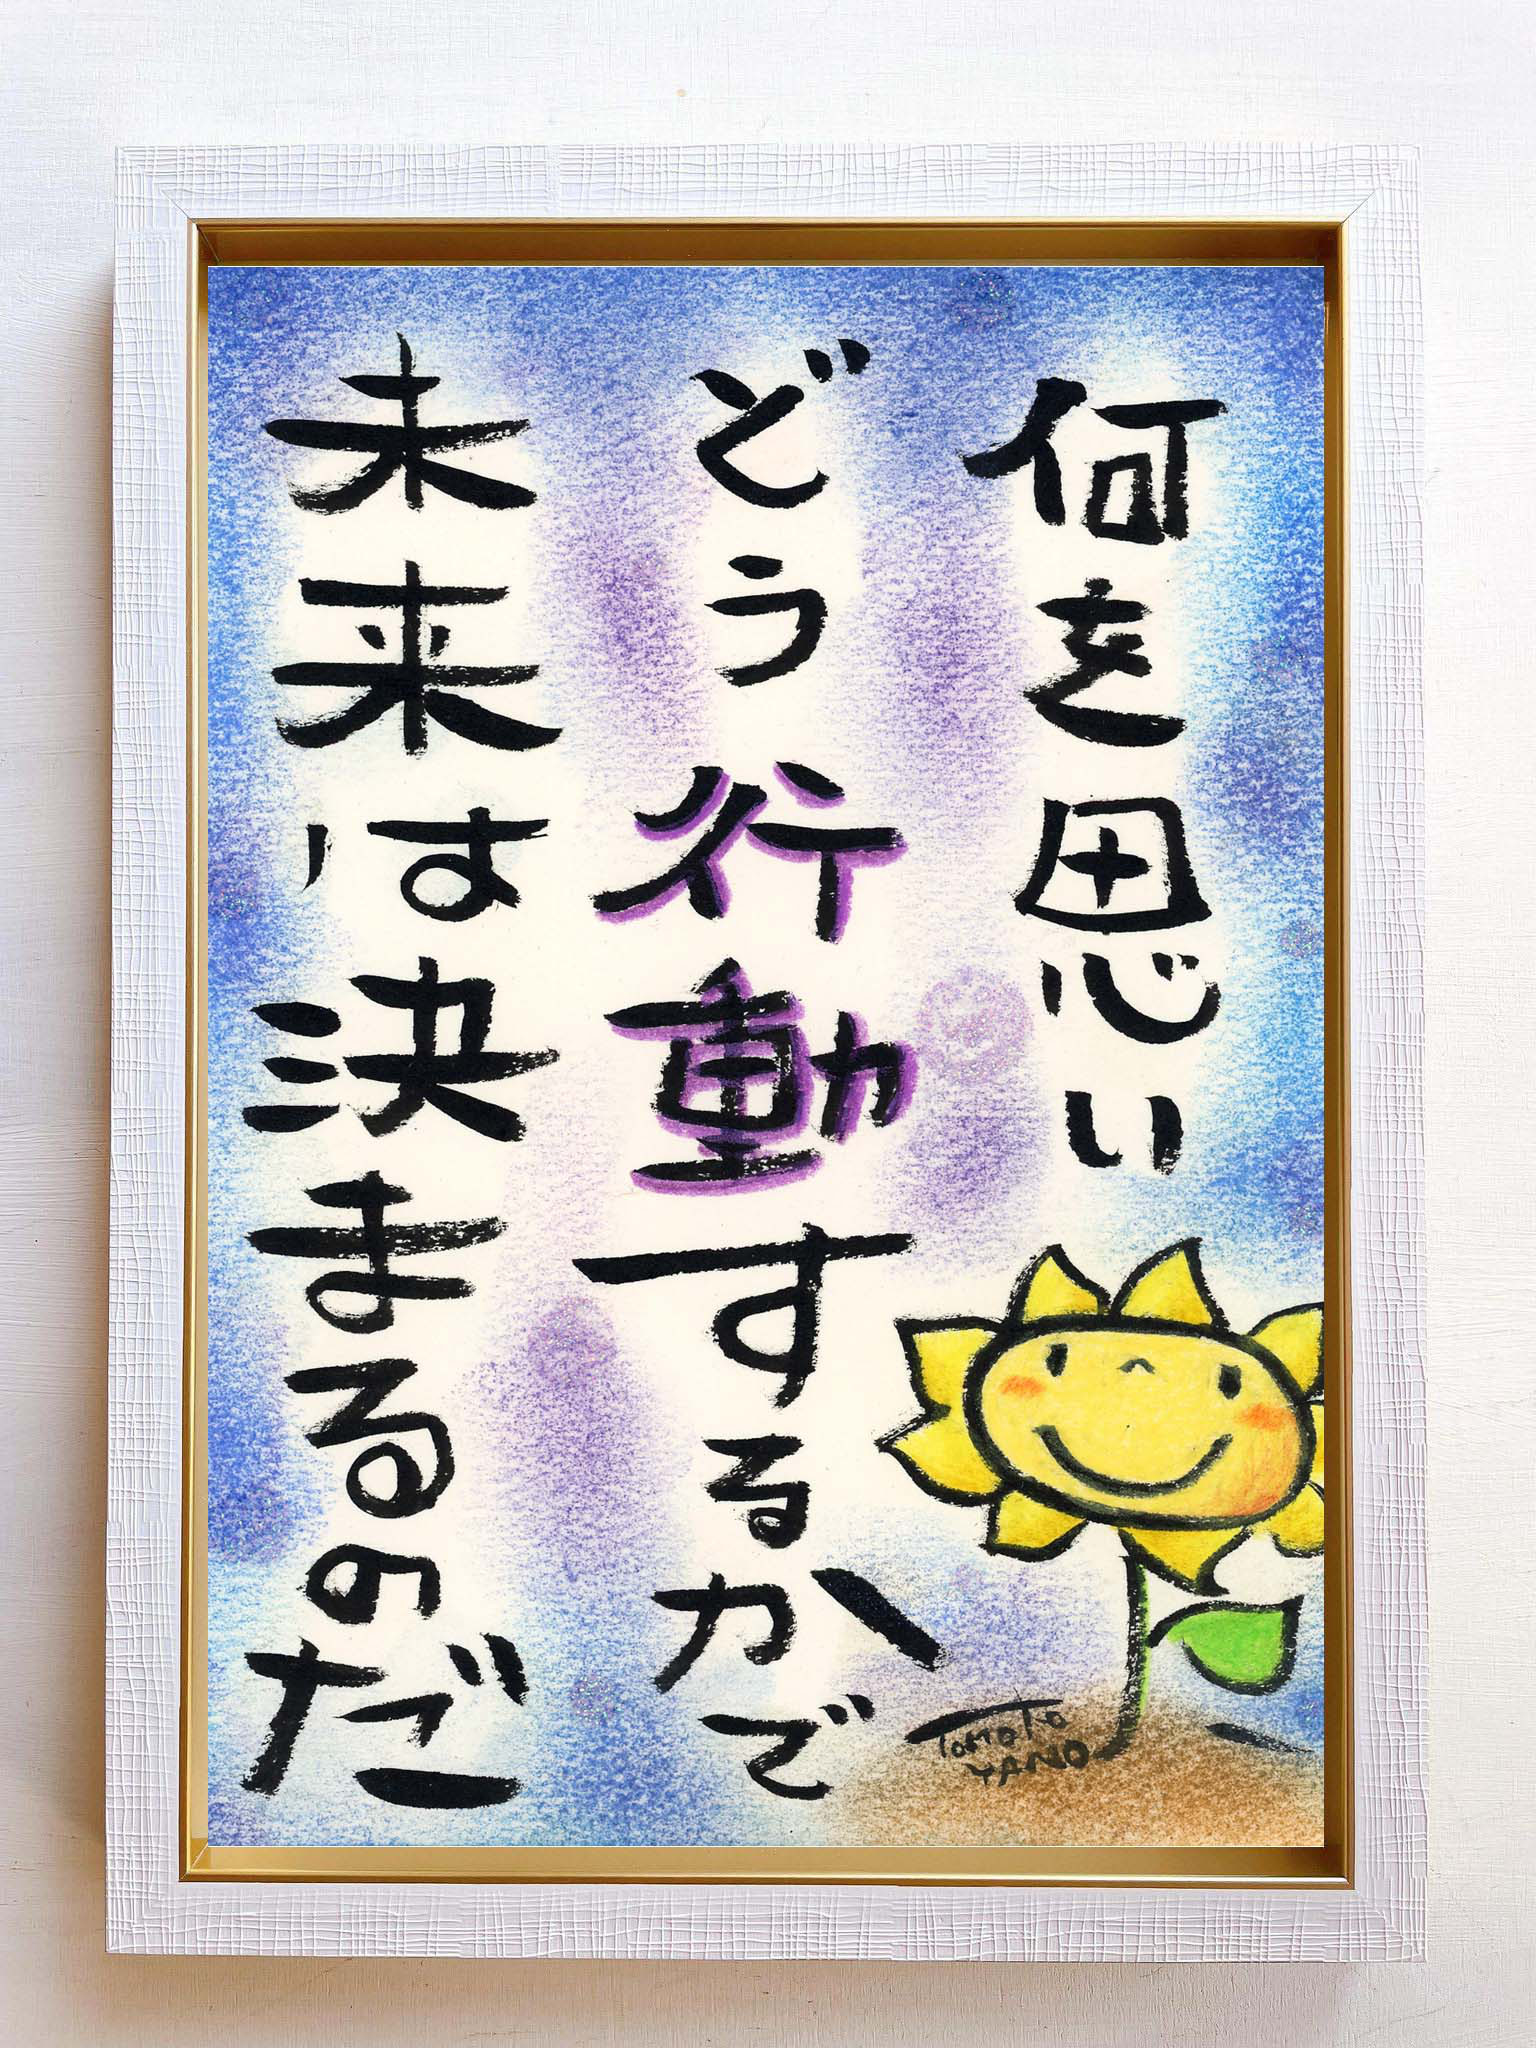 何を思い
どう行動するかで
未来は決まるのだ
Tomoko
YANO